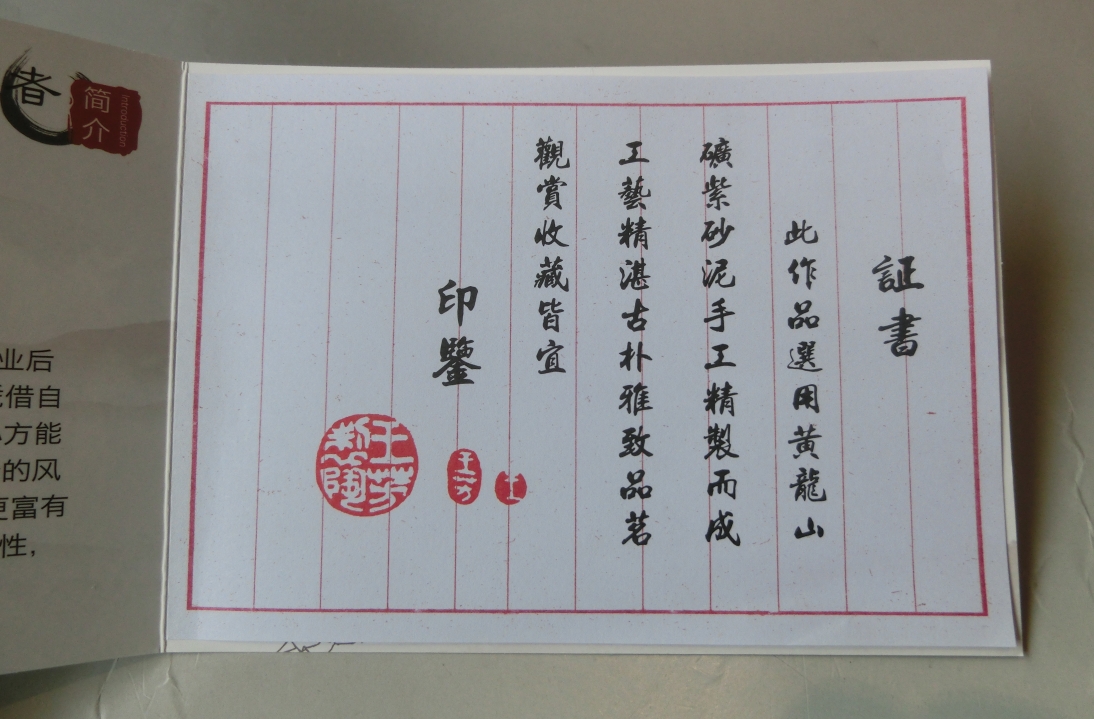 証書
此作品選用黄龍山
礦紫砂泥手工精製而成
工藝精湛古朴雅致品茗
觀賞收藏皆宜
印鑒
王芳
制陶
王芳
王
者
简介
Introduction
业后
借自
方能
的风
更富有
性，